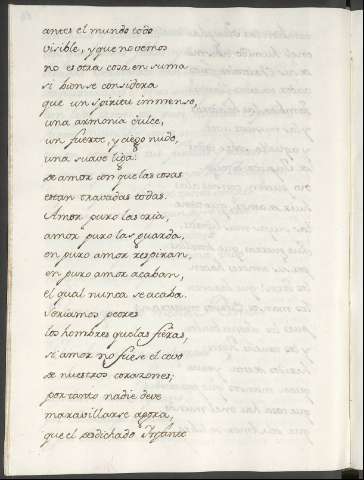 antes el mundo todo
visible, y que no vemos
no es otra cosa en suma
si bien se considera
que un spiritu immenso,
una armonia dulce,
un fuerte, y ciego nudo,
una suave liga
de amor con que las cosas
estan travadas todas.
Amor puro las cria,
amor puro las guarda,
en puro amor respiran,
en puro amor acaban,
el qual nunca se acaba.
Seriamos peores
los hombres que las fieras,
si amor no fuese el cevo
de nuestros corazones;
por tanto nadie deve
maravillarse agora,
que el desdichado Infante